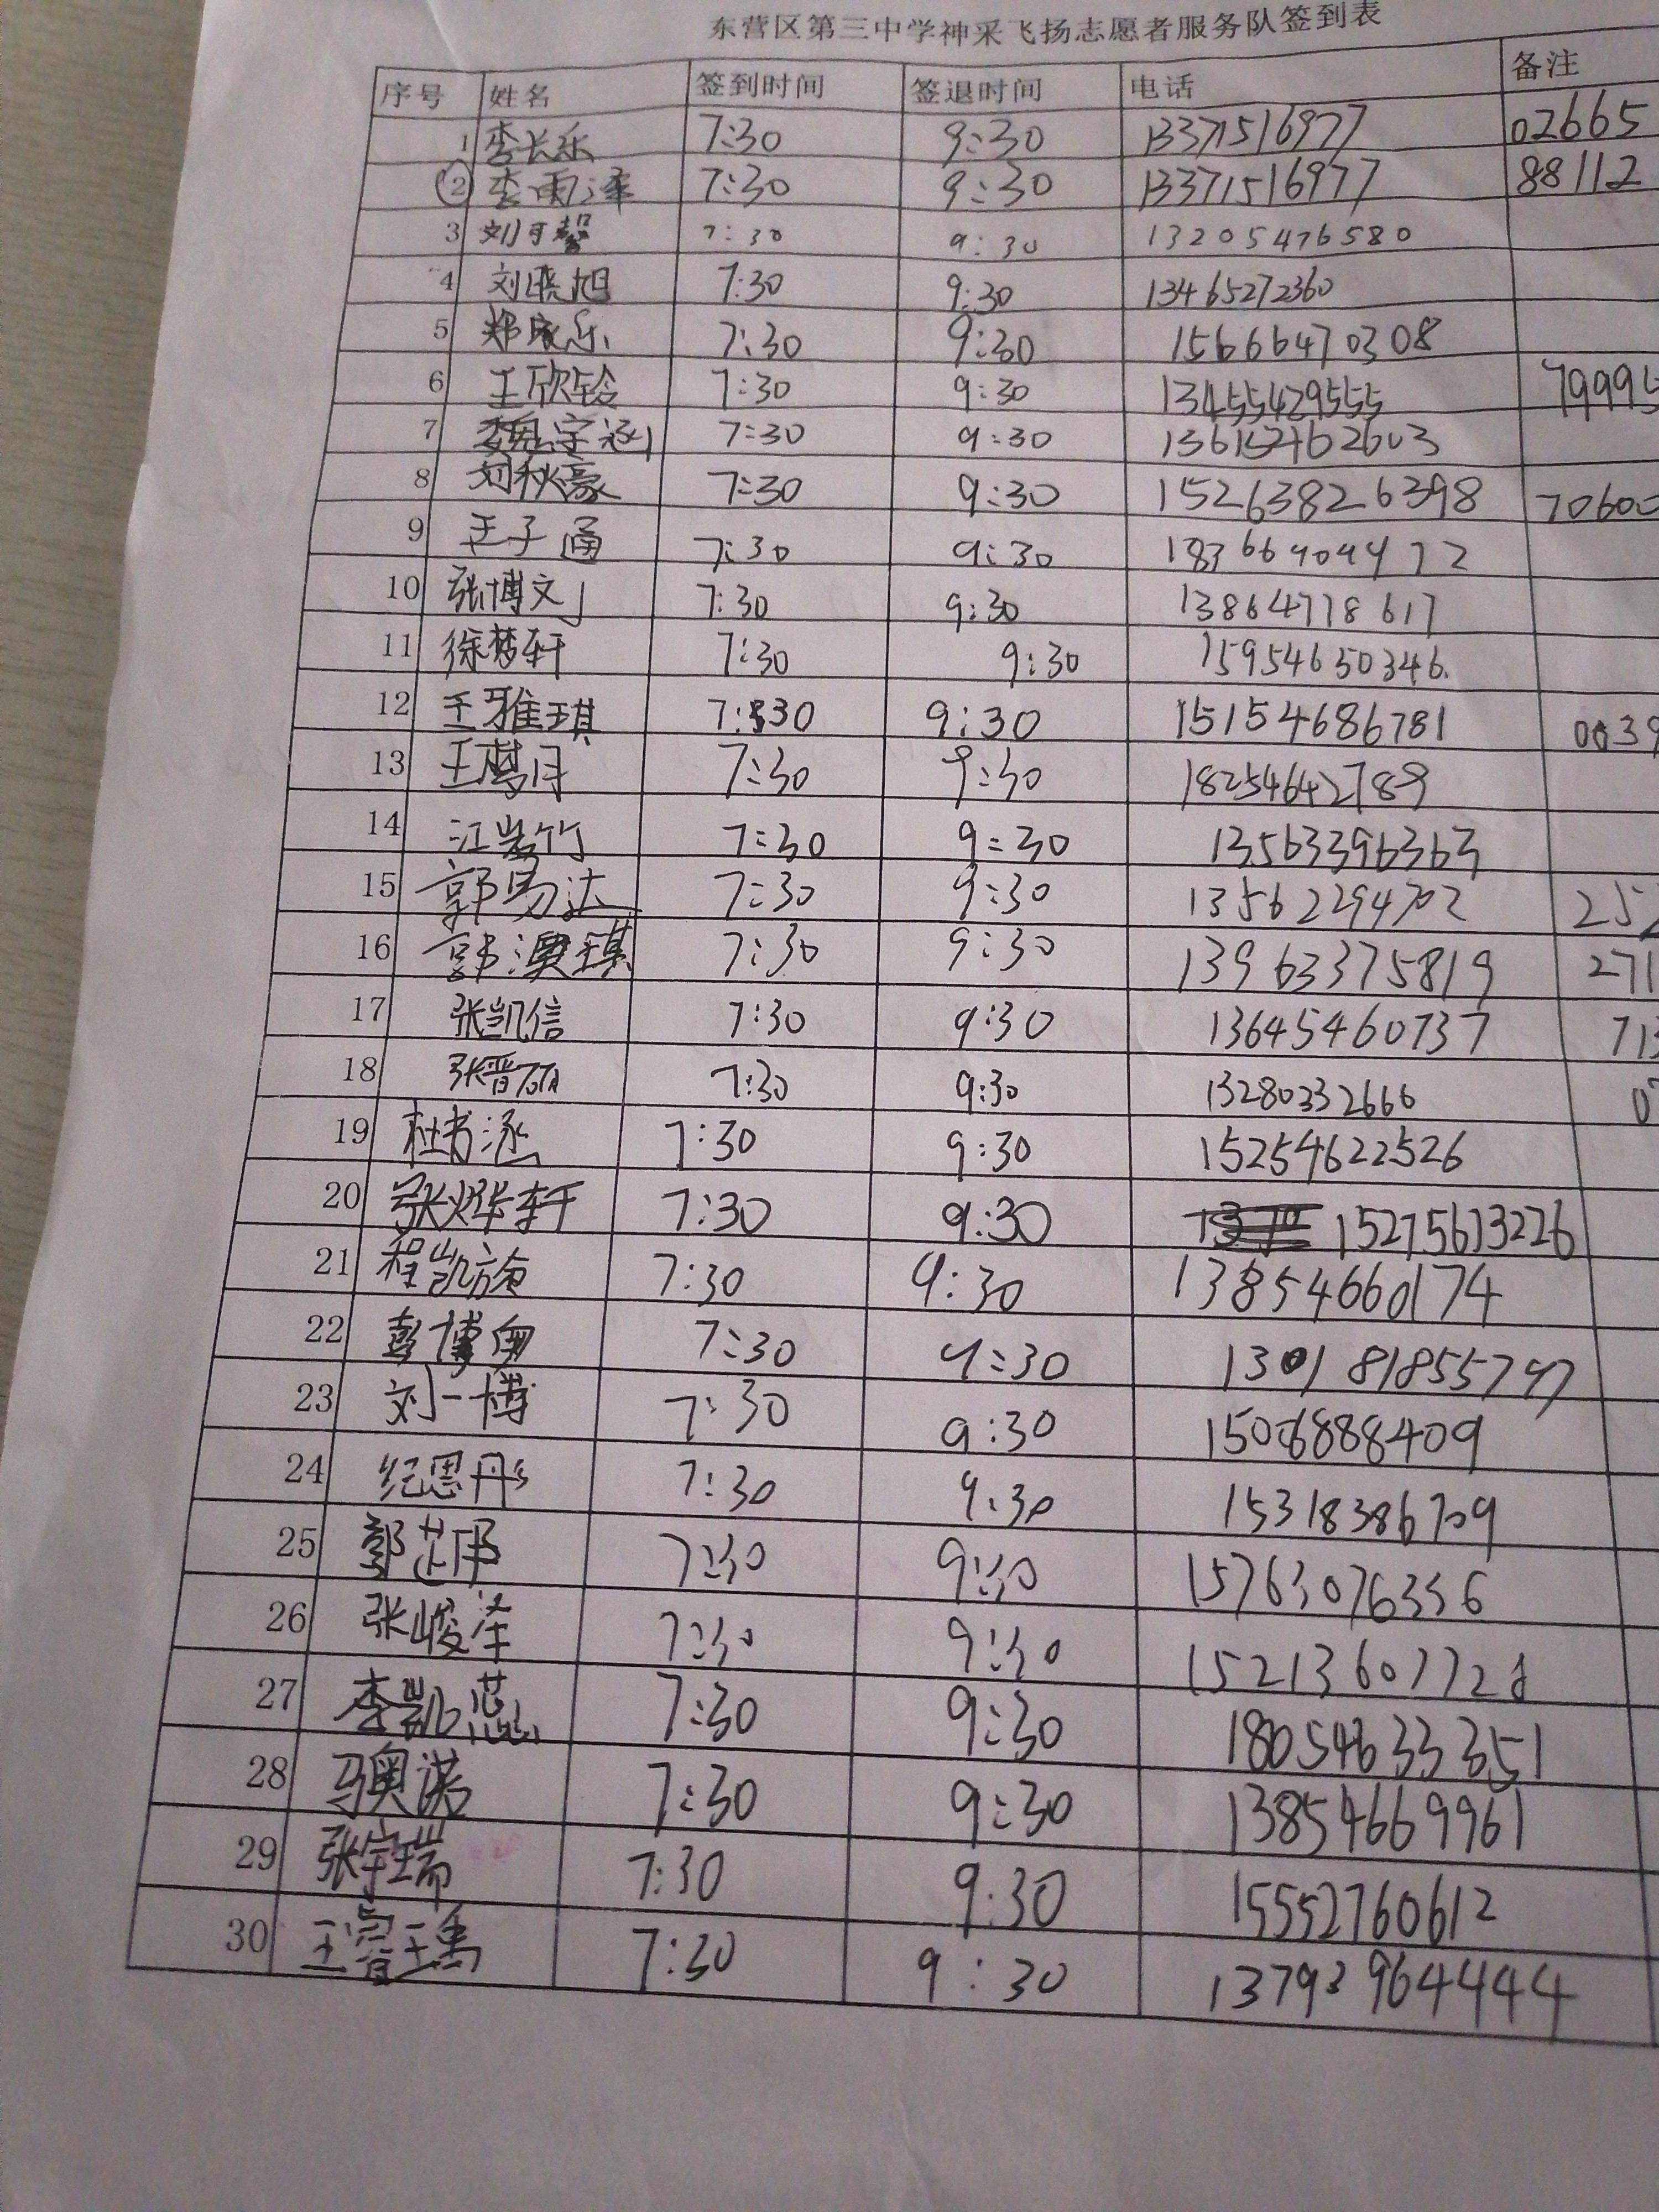 东营区第三中学神采飞扬志愿者服务队签到表
序号 姓名 签到时间 签退时间 电话 备注
1 李长乐 7:30 9:30 13371516977 02665
2 李雨泽 7:30 9:30 13371516977 88112
3 刘可馨 7:30 9:30 13205476580
4 刘晓旭 7:30 9:30 13465272360
5 郑家乐 7:30 9:30 15666470308
6 王欣铃 7:30 9:30 13455429555 79995
7 魏宇涵 7:30 9:30
8 刘秋豪 7:30 9:30 15263826398 70600
9 王子涵 7:30 9:30
10 张博文 7:30 9:30 13864778617
11 徐梦轩 7:30 9:30 15954650346
12 王雅琪 7:30 9:30 15154686781
13 7:30 9:30 18254642789
14 江岩竹 7:30 9:30 13563396363
15 郭易达 7:30 9:30 13562294702 252
16 郭澳琪 7:30 9:30 13963375819 271
17 张凯信 7:30 9:30 13645460737 713
18 7:30 9:30 13280332666
19 杜书涵 7:30 9:30 15254622526
20 张烨轩 7:30 9:30 15275673226
21 程凯旋 7:30 9:30 13854660174
22 7:30 9:30
23 刘一博 7:30 9:30
24 纪思彤 7:30 9:30 15318386709
25 郭芷伊 7:30 9:30 15763076336
26 张峻泽 7:30 9:30
27 李凯蕊 7:30 9:30 18054633351
28 马奥诺 7:30 9:30 13854669961
29 张宇瑞 7:30 9:30 15552760612
30 王睿瑀 7:30 9:30 13793964444